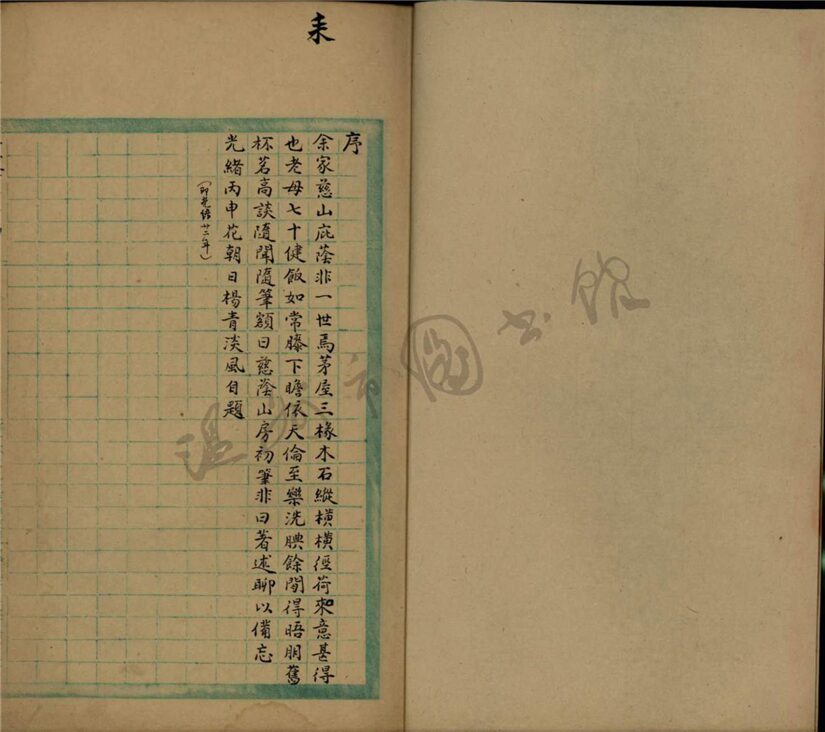 耒
序
余家慈山庇蔭非一世焉茅屋三椽木石縱橫橫徑荷來意甚得
也老母七十健飯如常膝下瞻依天倫至樂洗腆餘閒得晤朋舊
杯茗高談隨聞隨筆額曰慈蔭山房初筆非曰著述聊以備忘
光緒丙申花朝日楊青淡風自題
(即光緒廿二年)
温州市圖書館